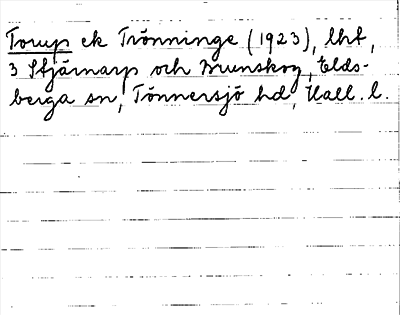 Torup ek Trönninge (1923), lht,
3 Stjärnarp och Brunskog, Elds-
berga sn, Tönnersjö hd, Hall. l.